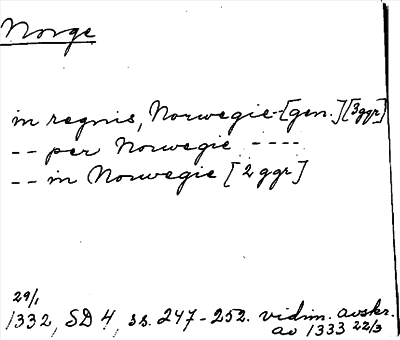 Norge
in regnis, Norwegie [gen.] [3ggr]
-- per Norwegie ----
-- in Norwegie [2 ggr]
29/1
1332, SD 4, ss. 247-252. vidim. avskr.
av 1333 22/3